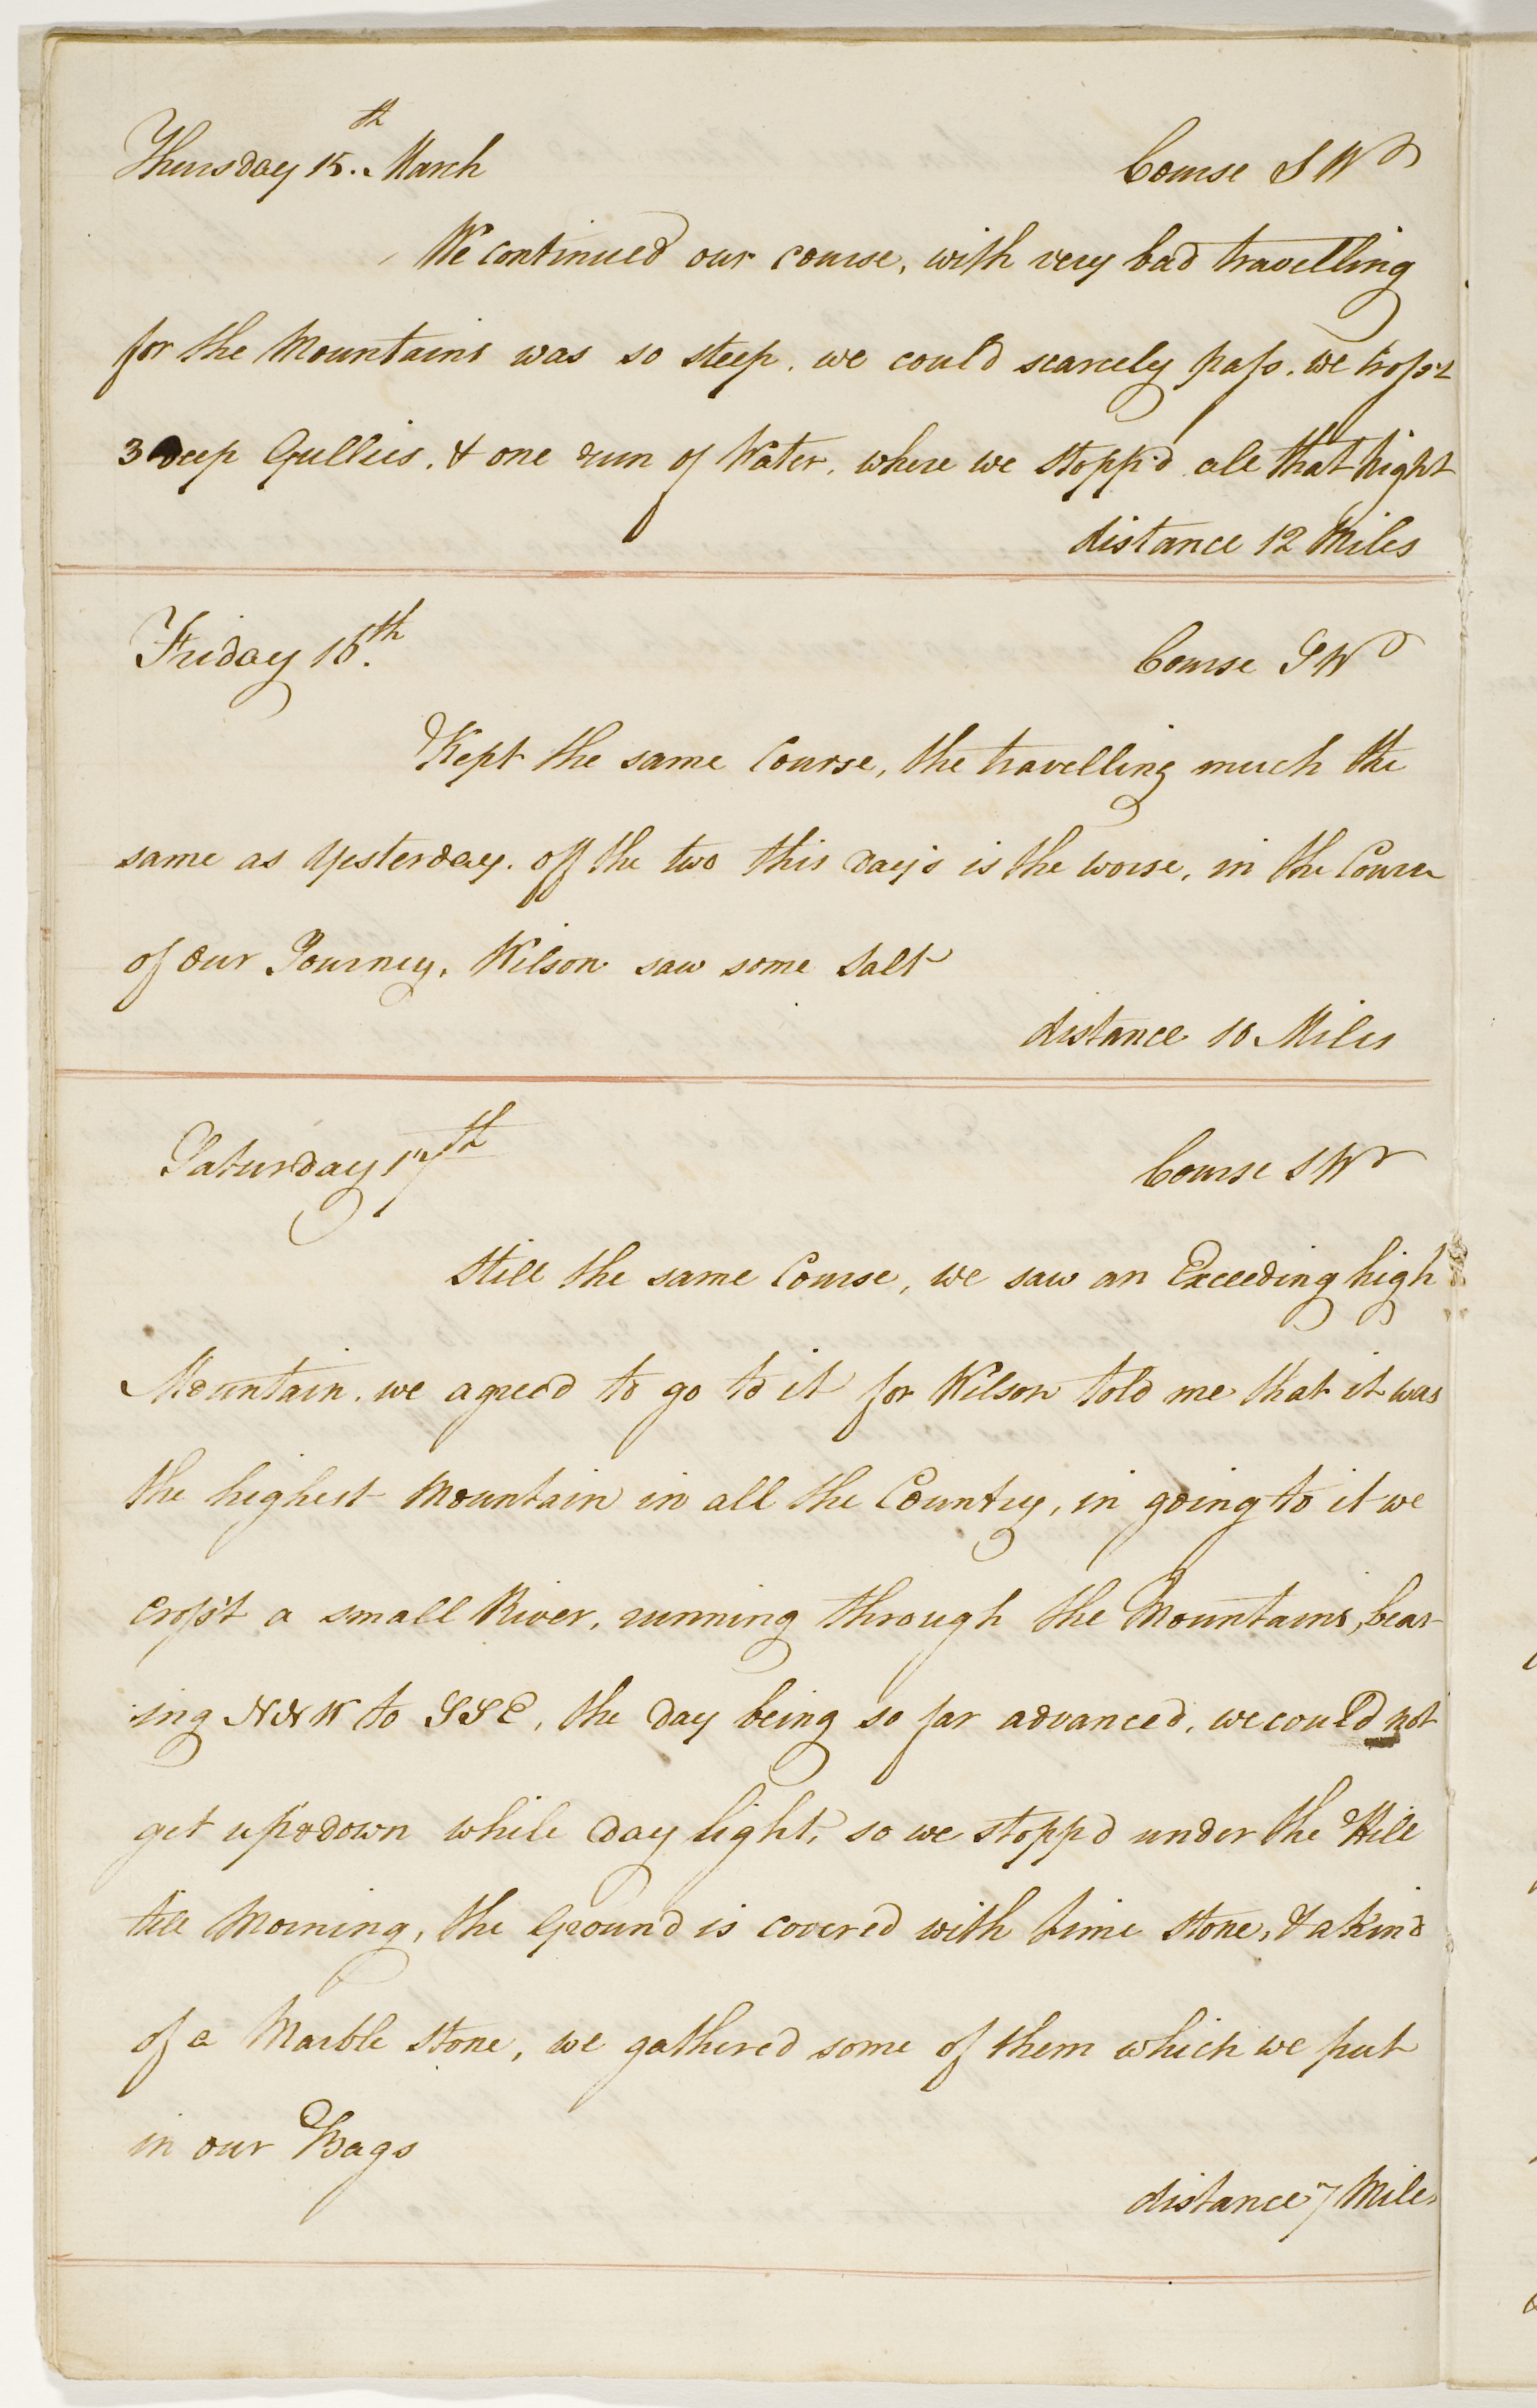 Thursday 15.th March Course SWd
We continued our course, with very bad travelling
for the Mountains was so steep. we could scarcely pass. we cross't
3 deep Gullies. & one run of Water. where we stopp'd all that Night
distance 12 Miles
Friday 16.th Course SWd
Kept the same Course, the travelling much the
same as Yesterday. off the two this day's is the worse, in the Course
of our Journey, Wilson saw some Salt
distance 10 Miles
Saturday 17th Course SWd
Still the same Course, we saw an Exceeding high
Mountain. we agreed to go to it for Wilson told me that it was
the highest Mountain in all the Country, in going to it we
cross't a small River, running through the Mountains, bear-
ing NNW to SSE, the day being so far advanced, we could not
get up & down while day light, so we stopp'd under the Hill
till Morning, the Ground is covered with lime Stone, & a kind
of a Marble Stone, we gathered some of them which we put
in our Bags
distance 7 Miles